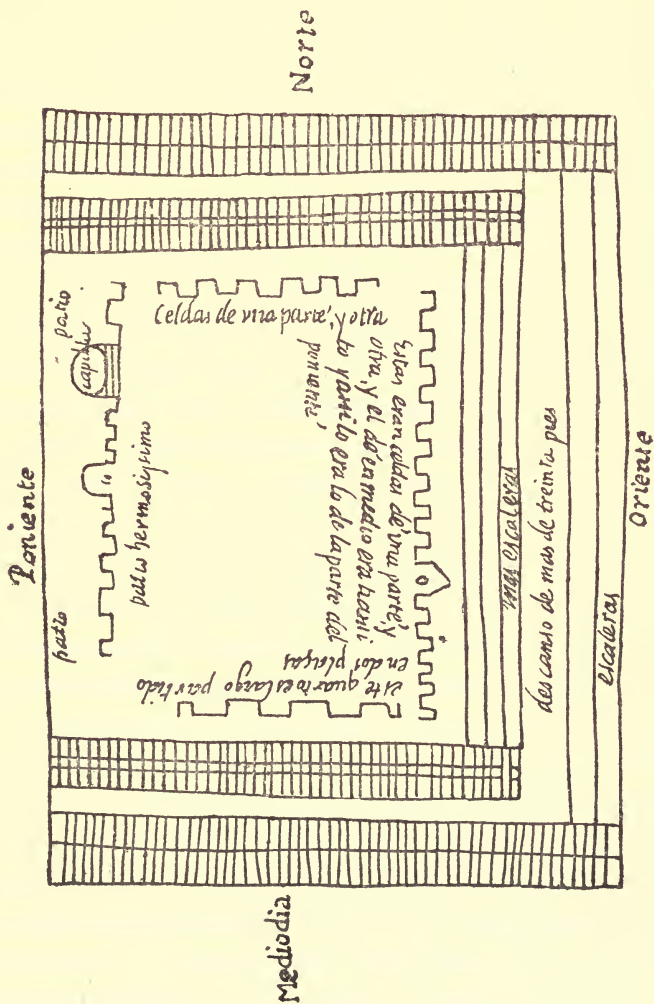 Norte
Poniente
Oriente
Mediodia
patio
patio
capilla
patio hermosissimo
Celdas de vna parte, y otra
Estas eran celdas de vna parte, y
otra, y el de enmedio era transi
to y assi lo era lo de la parte del
poniente,
este quarto es largo partido
en dos pieças
mas escaleras
descanso de mas de treinta pies
escaleras